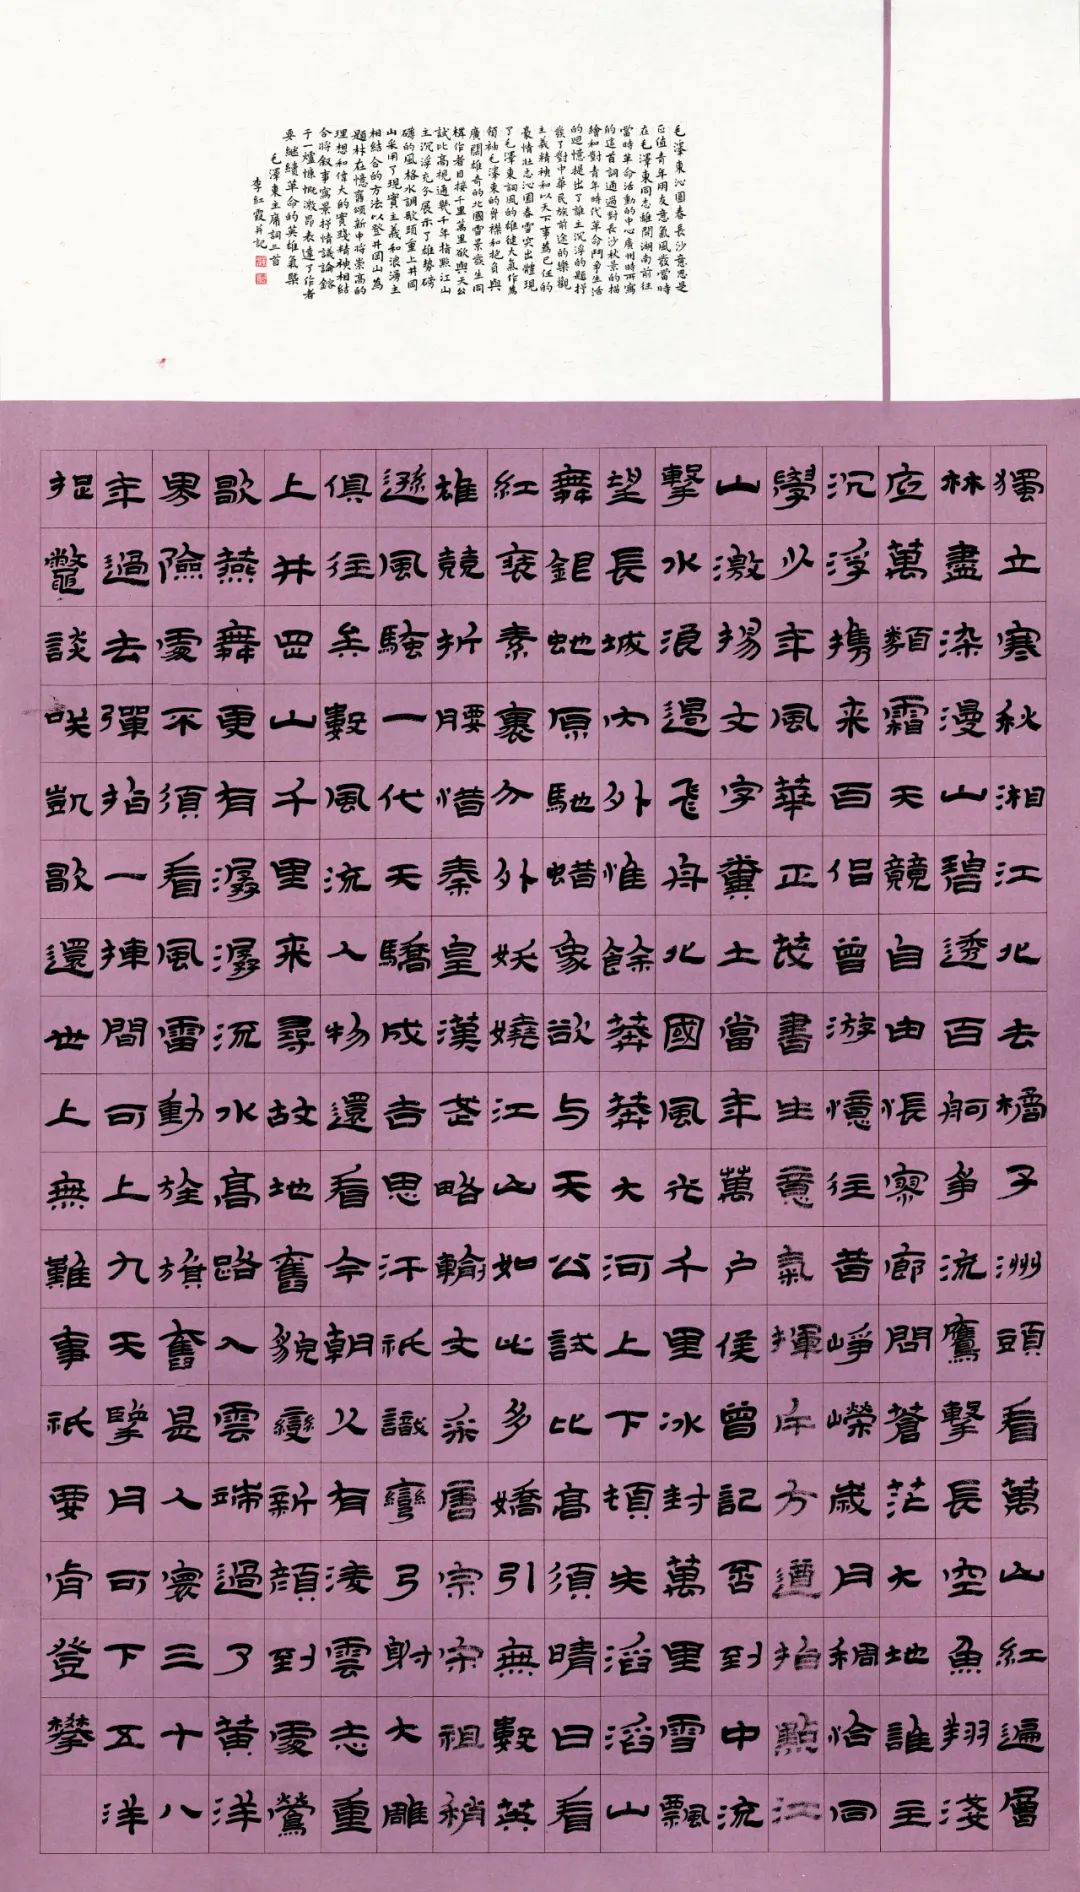 毛澤東沁園春長沙意思是
正值青年朋友意氣風發當時
在毛澤東同志離開湖南前往
當時革命活動的中心廣州時所寫
的這首詞通過對長沙秋景的描
繪和對青年時代革命鬥爭生活
的回憶提出了誰主沉浮的題抒
發了對中華民族前途的樂觀
主義精神和以天下事為己任的
豪情壯志沁園春雪突出體現
了毛澤東詞風的雄健大氣作為
領袖毛澤東的胸襟和抱負與
廣闊雄奇的北國雪景發生同
構作者目接千里萬里欲與天公
試比高視通幾千年指點江山
主沉浮充分展示了雄勢磅
礴的風格水調歌頭重上井岡
山采用了現實主義和浪漫主
相結合的方法以登井岡山為
題材在憶舊頌新中將崇高的
理想和偉大的實踐精神相結
合將敘事寫景抒情議論鎔
于一爐慷慨激昂表達了作者
要繼續革命的英雄氣槩
毛澤東主席詞三首
李紅霞并記
獨立寒秋湘江北去橘子洲頭看萬山紅遍層
林盡染漫山碧透百舸爭流鷹擊長空魚翔淺
底萬類霜天競自由悵寥廓問蒼茫大地誰主
沉浮攜來百侣曾游憶往昔崢嶸歲月稠恰同
學少年風華正茂書生意氣揮斥方遒指點江
山激揚文字糞土當年萬户侯曾記否到中流
擊水浪遏飛舟北國風光千里冰封萬里雪飄
望長城內外惟餘莽莽大河上下頓失滔滔山
舞銀蛇原馳蜡象欲与天公試比高須晴日看
紅裝素裹分外妖嬈江山如此多嬌引無數英
雄競折腰惜秦皇漢武略輸文采唐宗宋祖稍
遜風騷一代天驕成吉思汗祇識彎弓射大雕
俱往矣數風流人物還看今朝久有凌雲志重
上井岡山千里来尋故地舊貌變新顏到處鶯
歌燕舞更有潺潺流水高路入雲端過了黃洋
界險處不須看風雷動旌旗奮是人寰三十八
年過去彈指一揮間可上九天攬月可下五洋
捉鱉談笑凱歌還世上無難事祇要肯登攀